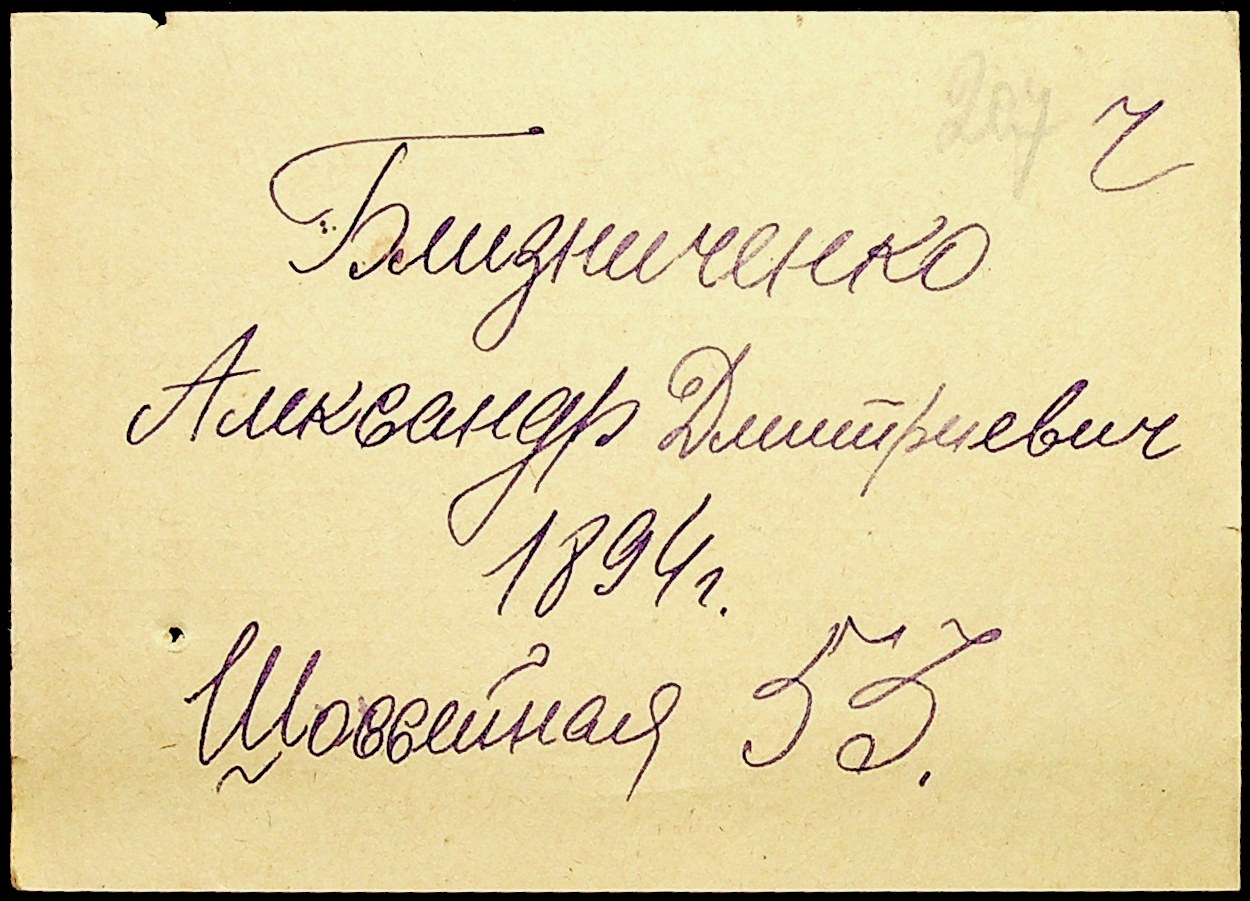 Близниченко
Александр Дмитриевич
1894 г.
Шоссейная 53.